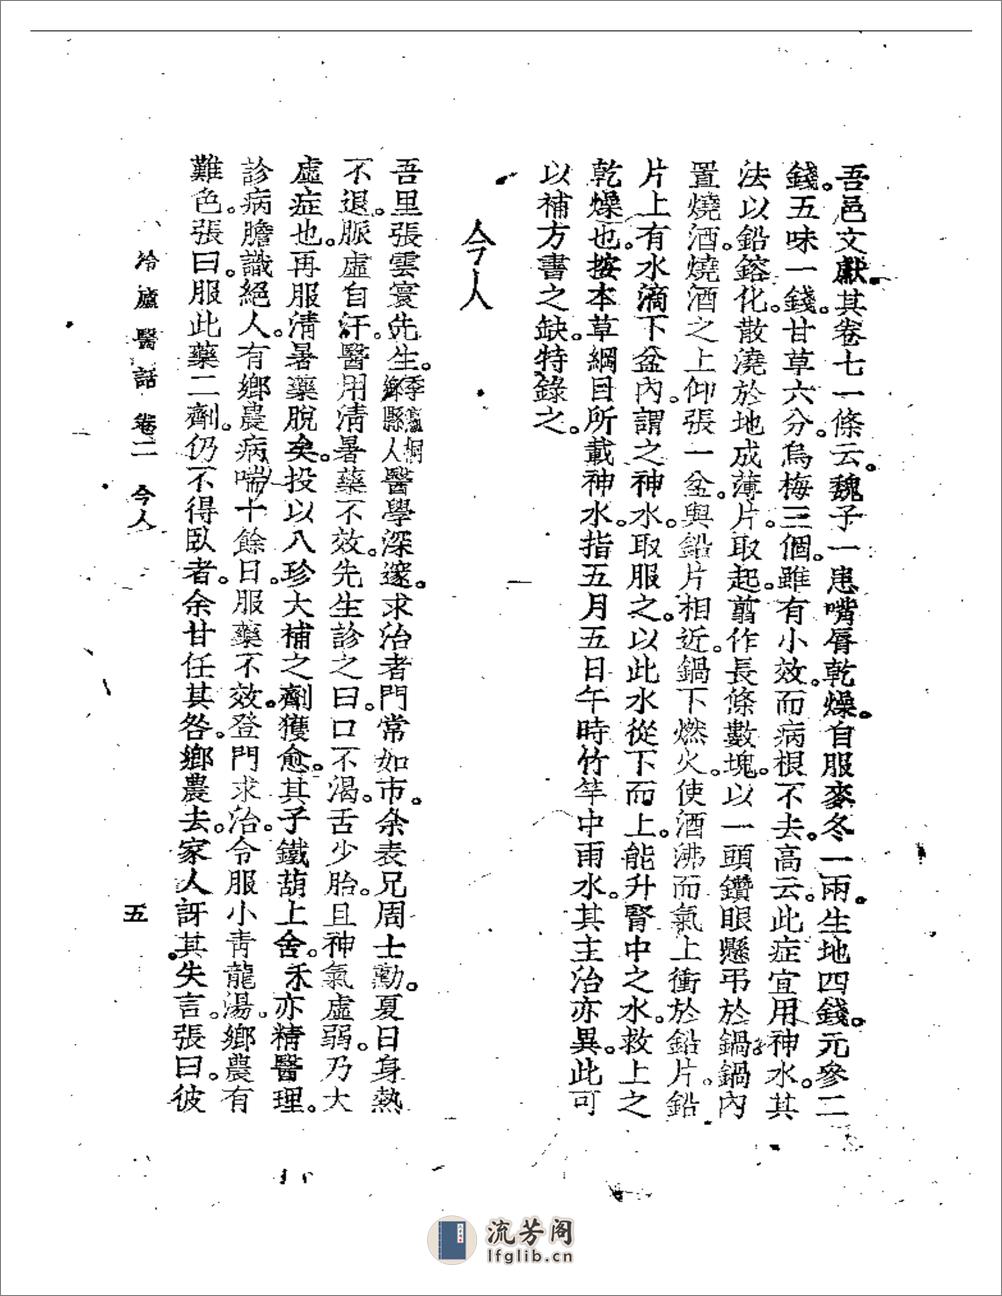 吾邑文獻。其卷七一條云。魏子一患嘴脣乾燥。自服麥冬一兩。生地四錢。元參二
錢。五味一錢。甘草六分。烏梅三個。雖有小效。而病根不去。高云。此症宜用神水。其
法以鉛鎔化。散澆於地成薄片。取起翦作長條數塊。以一頭鑽眼懸弔於鍋。鍋內
置燒酒。燒酒之上仰張一盆。與鉛片相近。鍋下燃火。使酒沸而氣上衝於鉛片。鉛
片上有水滴下盆內。謂之神水。取服之。以此水從下而上。能升腎中之水。救上之
乾燥也。按本草綱目所載神水。指五月五日午時竹竿中雨水。其主治亦異。此可
以補方書之缺。特錄之。
今人
吾里張雲寰先生。季瀛桐鄉縣人醫學深邃。求治者門常如市。余表兄周士勳。夏日身熱
不退。脈虛自汗。醫用清暑藥不效。先生診之曰。口不渴。舌少胎。且神氣虛弱。乃大
虛症也。再服清暑藥脫矣。投以八珍大補之劑獲愈。其子鐵葫上舍。禾亦精醫理。
診病膽識絕人。有鄉農病喘十餘日。服藥不效。登門求治。令服小青龍湯。鄉農有
難色。張曰。服此藥二劑。仍不得臥者。余甘任其咎。鄉農去。家人訝其失言。張曰。彼
冷廬醫話 卷二 今人
五
流芳阁
lfglib.cn